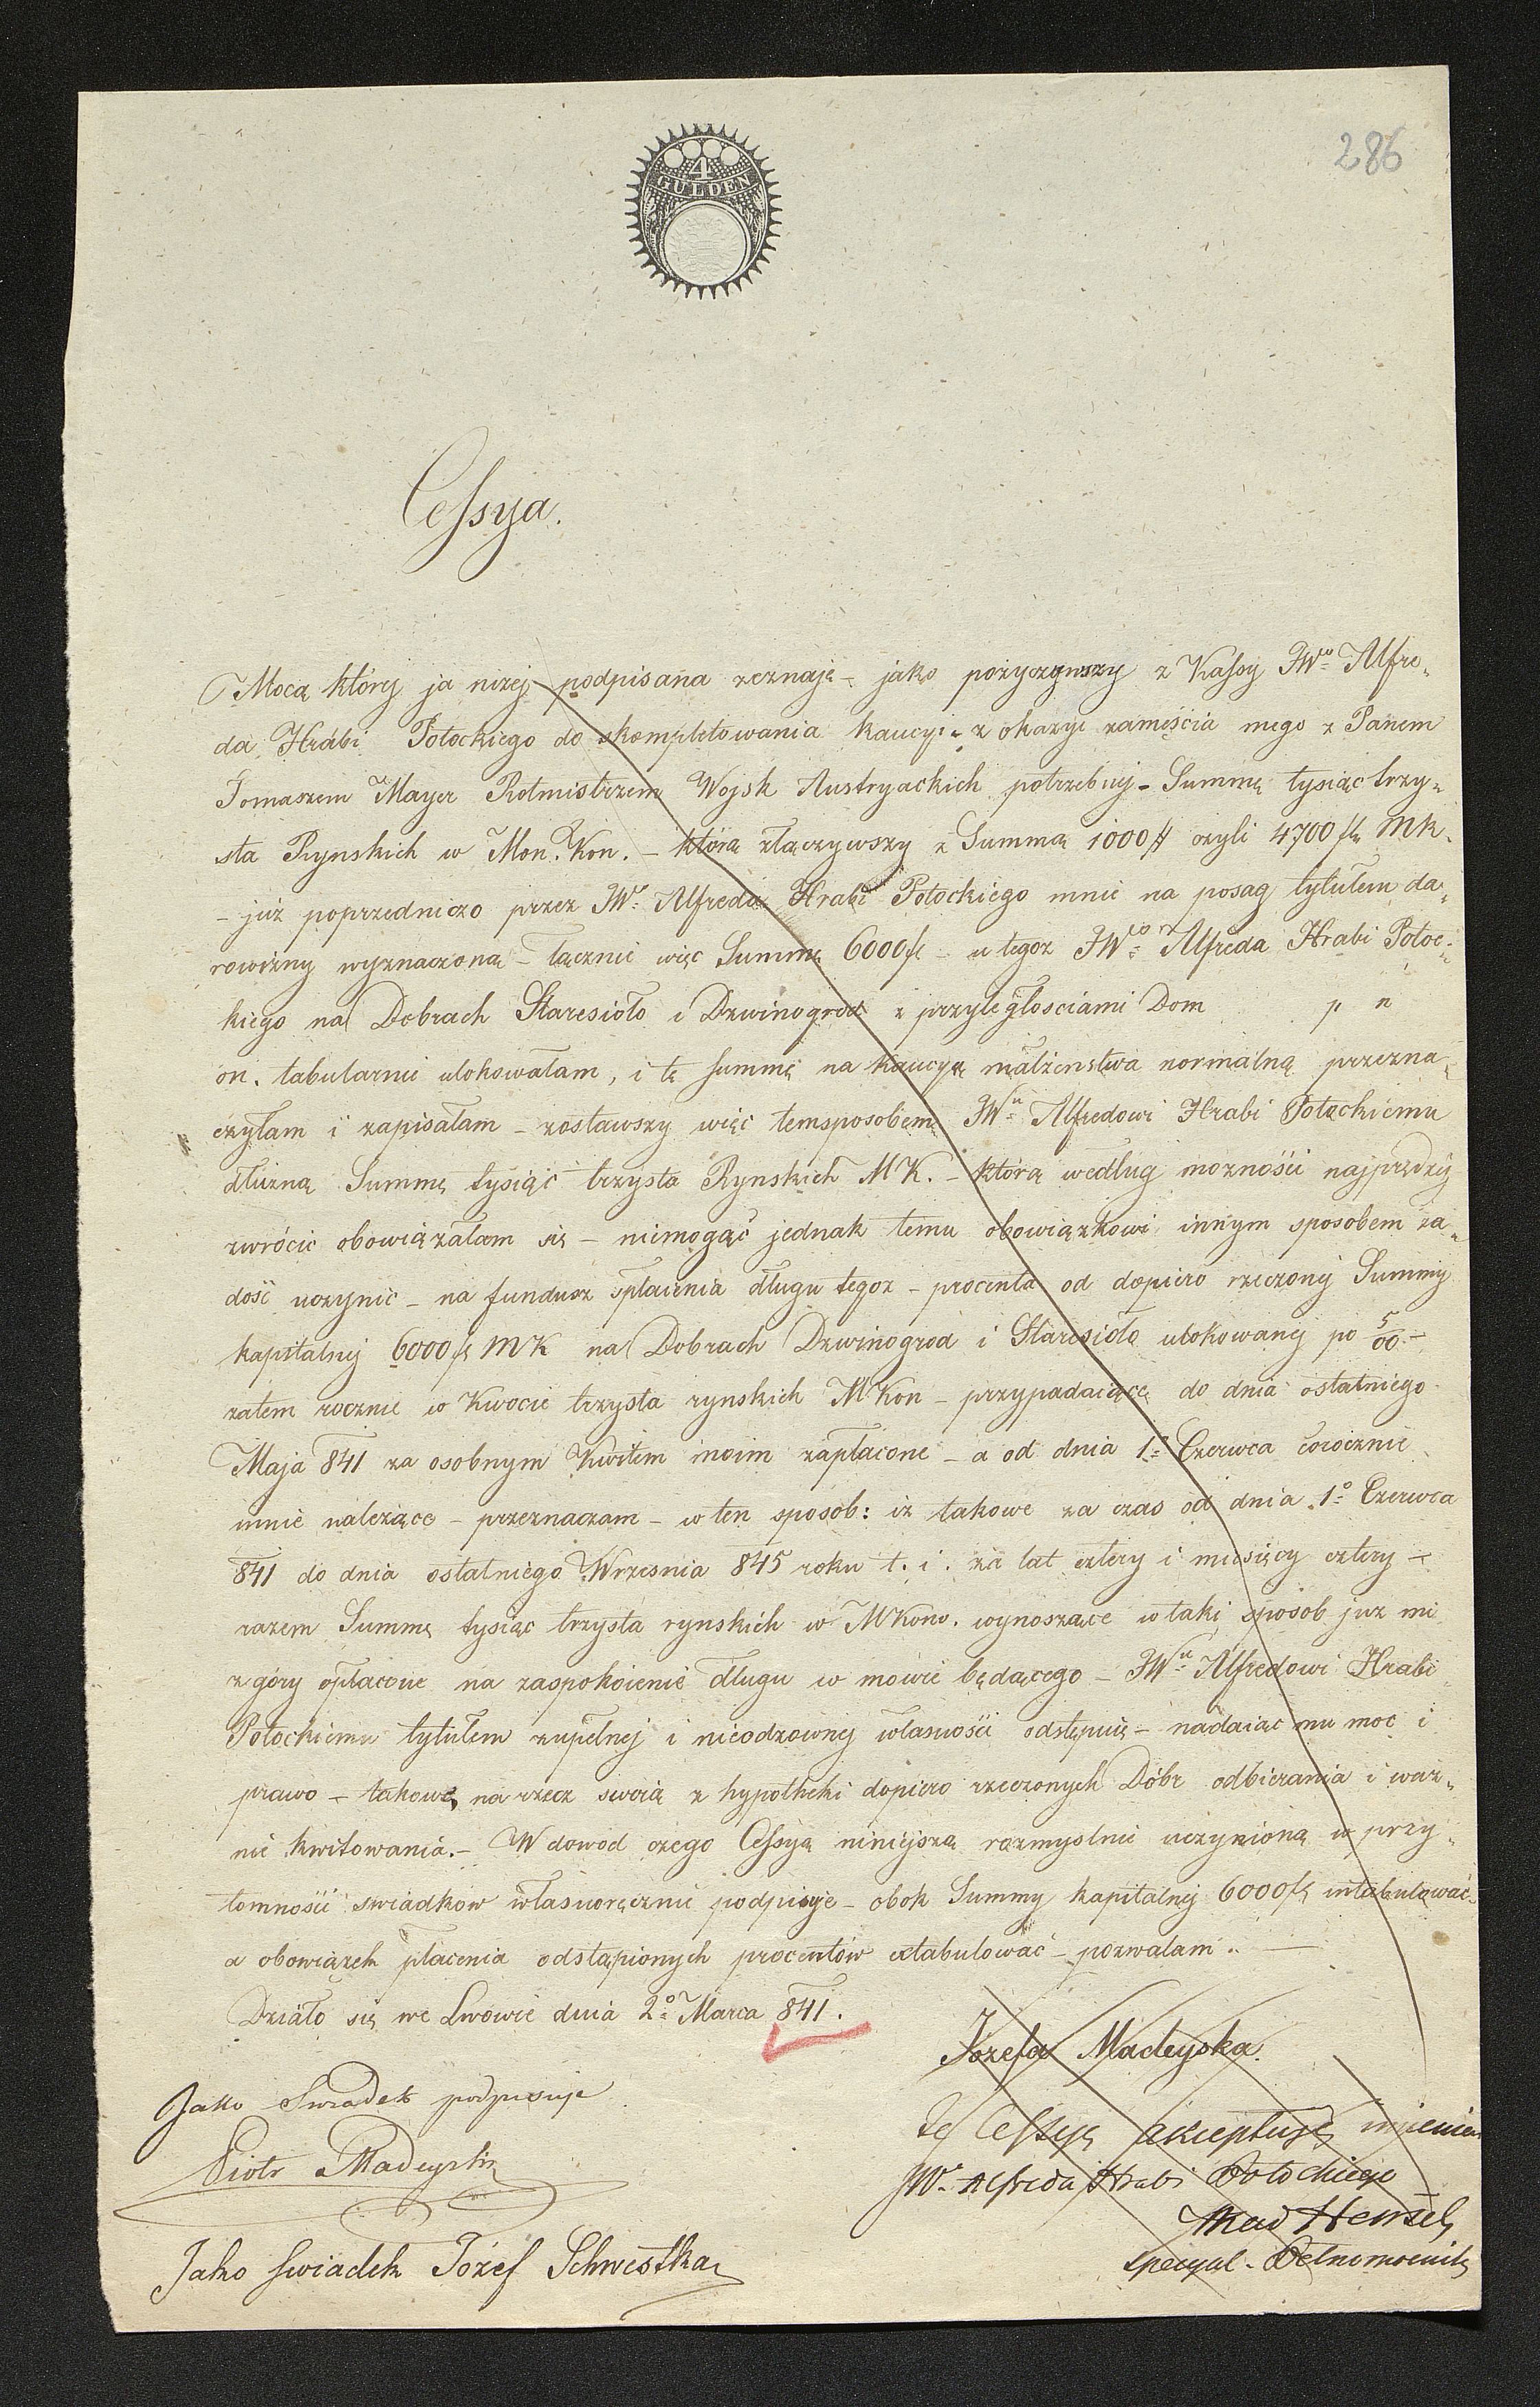 286
4
GULDEN
Cessya.
Mocą któréj ja niżej podpisana zeznaję – jako pożyczywszy z Kassy JWo Alfre„
da Hrabi Potockiego do skompletowania kaucyi z okazyi zamęścia mego z Panem
Tomaszem Mayer Rotmistrzem Wojsk Austryackich potrzebnéj – Summę tysiąc trzy„
sta Rynskich w Mon. Kon. – którą złączywszy z Summą 1000 # czyli 4700 fr MK.
– już poprzedniczo przez JWo Alfreda Hrabi Potockiego mnie na posag tytułem da„
rowizny wyznaczoną – łącznie więc Summę 6000 fr – u tegoż JWgo Alfreda Hrabi Potoc„
kiego na Dobrach Staresioło i Dzwinogrod z przyległosciami Dom p n
on. tabularnie ulokowałam, i tę summę na kaucyę małżenstwa normalną przezna„
czyłam i zapisałam – zostawszy więc temsposobem JWu Alfredowi Hrabi Potockiemu
dłużną Summę tysiąc trzysta Rynskich MK. – którą według możności najprędzéj
zwrócić obowiązałam się – niemogąc jednak temu obowiązkowi innym sposobem za„
dość uczynić – na fundusz spłacenia długu tegoż – procenta od dopiero rzeczonéj Summy
kapitalnéj 6000 fr MK na Dobrach Dzwinogrod i Staresioło ulokowanéj po 5/00 –
zatem rocznie w Kwocie trzysta rynskich MKon – przypadaiące do dnia ostatniego
Maja 841 za osobnym Kwitem moim zapłacone – a od dnia 1o Czerwca corocznie
mnie należące – przeznaczam – w ten sposob: iż takowe za czas od dnia 1o Czerwca
841 do dnia ostatniego Wrzesnia 845 roku t. i. za lat cztery i miesięcy cztery –
razem Summę tysiąc trzysta rynskich w MKonw. wynoszące w taki sposób juz mi
z góry opłacone na zaspokoienie długu w mowie będącego – JWu Alfredowi Hrabi
Potockiemu tytułem zupełnej i nieodzownej własności odstępuię – nadaiąc mu moc i
prawo – takowe na rzecz swoią z hypotheki dopiero rzeczonych Dóbr odbierania i waż„
nie kwitowania. – W dowod czego Cessyą niniejszą rozmyslnie uczynioną w przy„
tomności swiadków własnoręcznie podpisuje – obok Summy kapitalnéj 6000 fr intabulować
a obowiązek płacenia odstąpionych procentów extabulować – pozwalam. –
Działo się we Lwowie dnia 2o Marca 841.
Józefa Madeyska.
Jako Swiadek podpisuje
Piotr Madeyski
Tę Cessyę akceptuję imieniem
JW. Alfreda Hrabi Potockiego
Hensel
specyal. Pełnomocnik
Jako swiadek Józef Schwestka